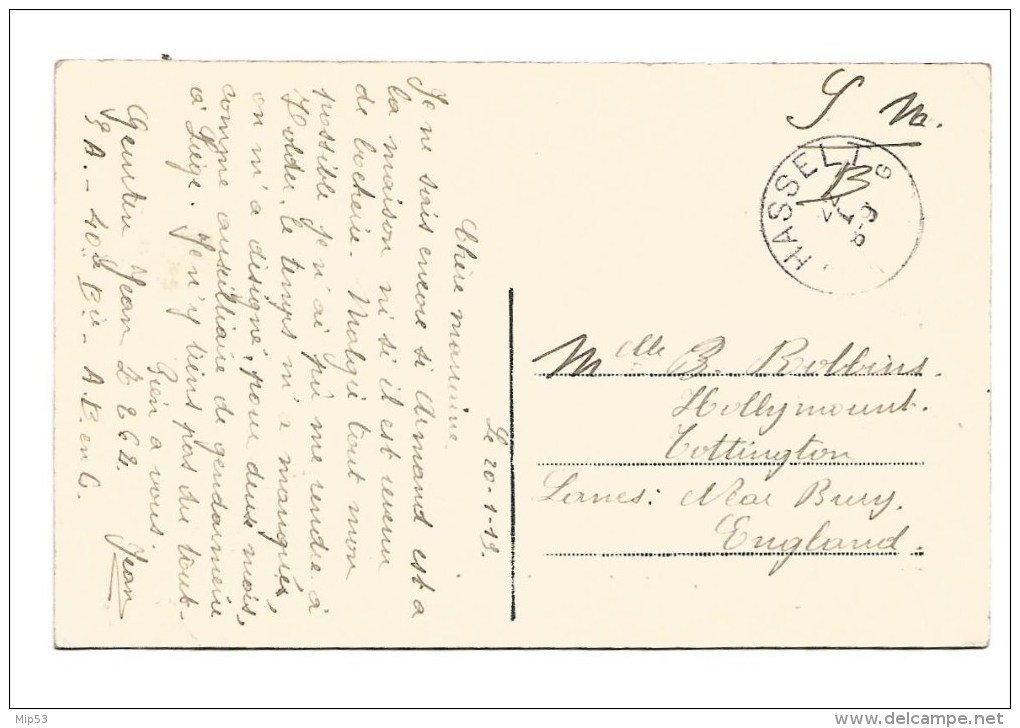 Le 20-1-19.
Chère marraine
Je ne sais encore si Armand est a
la maison ni si il est revenu
de bocherie. Malgré tout mon
possible je n'ai pû me rendre à
le temps m'a manqué,
on m'a désigné, pour deux mois,
comme auxilliaire de gendarmerie
à Liège. Je n'y tiens pas du tout.
Bien a vous.
Jean
Jean Z 262.
9 A. - 40. - A. B. en C.
S. M.
HASSELT
B
Mlle B. Robbins.
Hollymount.
Tottington
Lancs: Near Bury.
England.
Mip53
delcampe.net